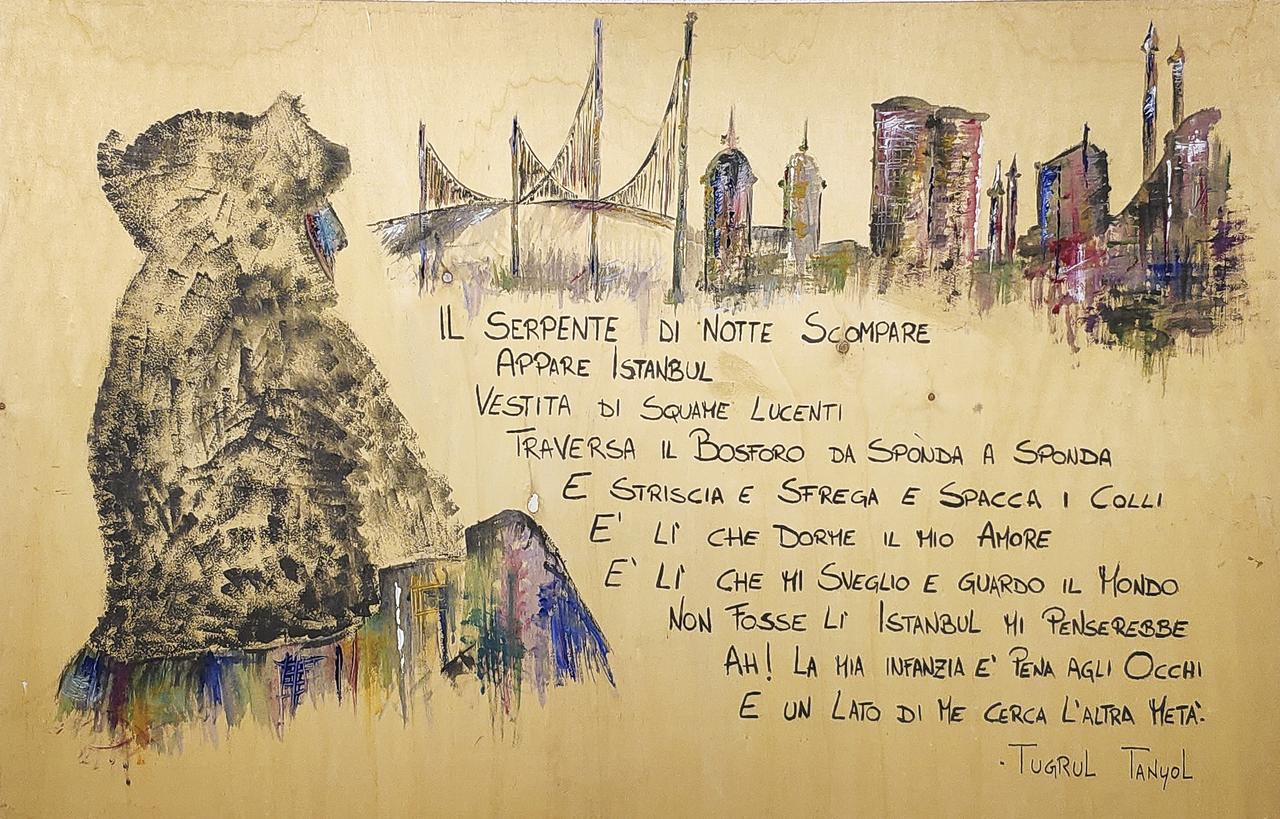 IL SERPENTE DI NOTTE SCOMPARE
APPARE ISTANBUL
VESTITA DI SQUAME LUCENTI
TRAVERSA IL BOSFORO DA SPÒNDA A SPONDA
E STRISCIA E SFREGA E SPACCA I COLLI
E' LI' CHE DORME IL MIO AMORE
E' LI' CHE MI SVEGLIO E GUARDO IL MONDO
NON FOSSE LI' ISTANBUL MI PENSEREBBE
AH! LA MIA INFANZIA E' PENA AGLI OCCHI
E UN LATO DI ME CERCA L'ALTRA META'.
· TUGRUL TANYOL